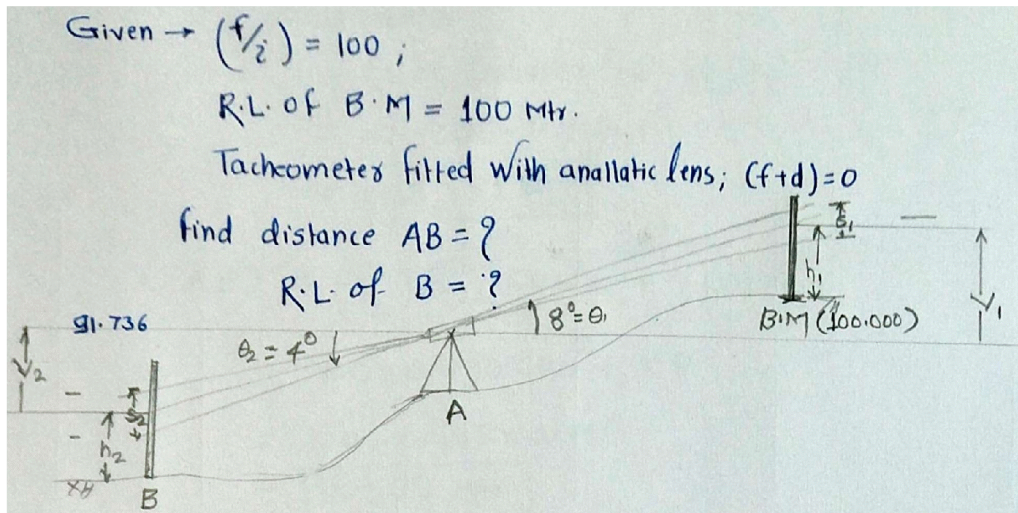 Given → (f/i) = 100 ;
R.L. of B.M = 100 Mtr.
Tacheometer fitted with anallatic lens; (f+d)=0
find distance AB = ?
R.L. of B = ?
S₁
h₁
V₁
B.M (100.000)
8°=θ₁
91.736
θ₂ = 4°
V₂
A
S₂
h₂
B